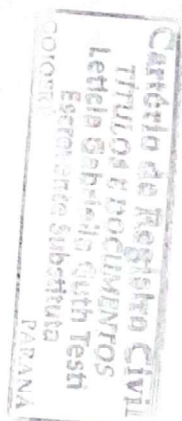 Cartório de Registro Civil
TÍTULOS E DOCUMENTOS
Leticia Gabriella Guth Testi
Escrevente Substituta
PARANÁ